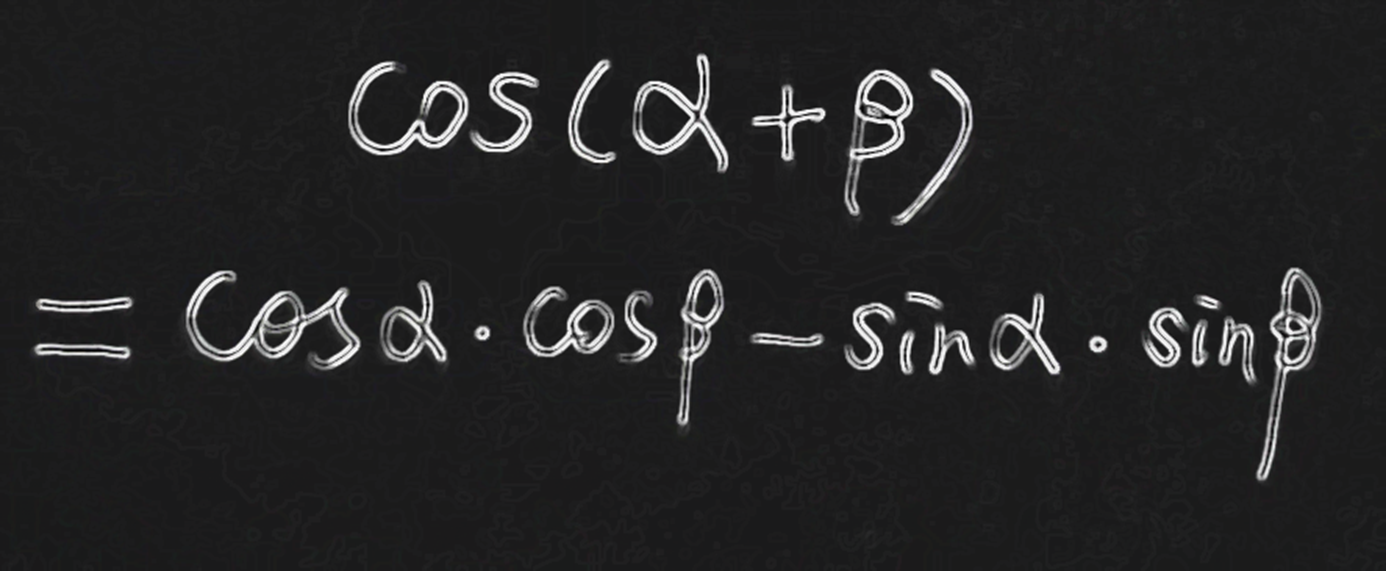 cos(α+β)
= cosα·cosβ-sinα·sinβ